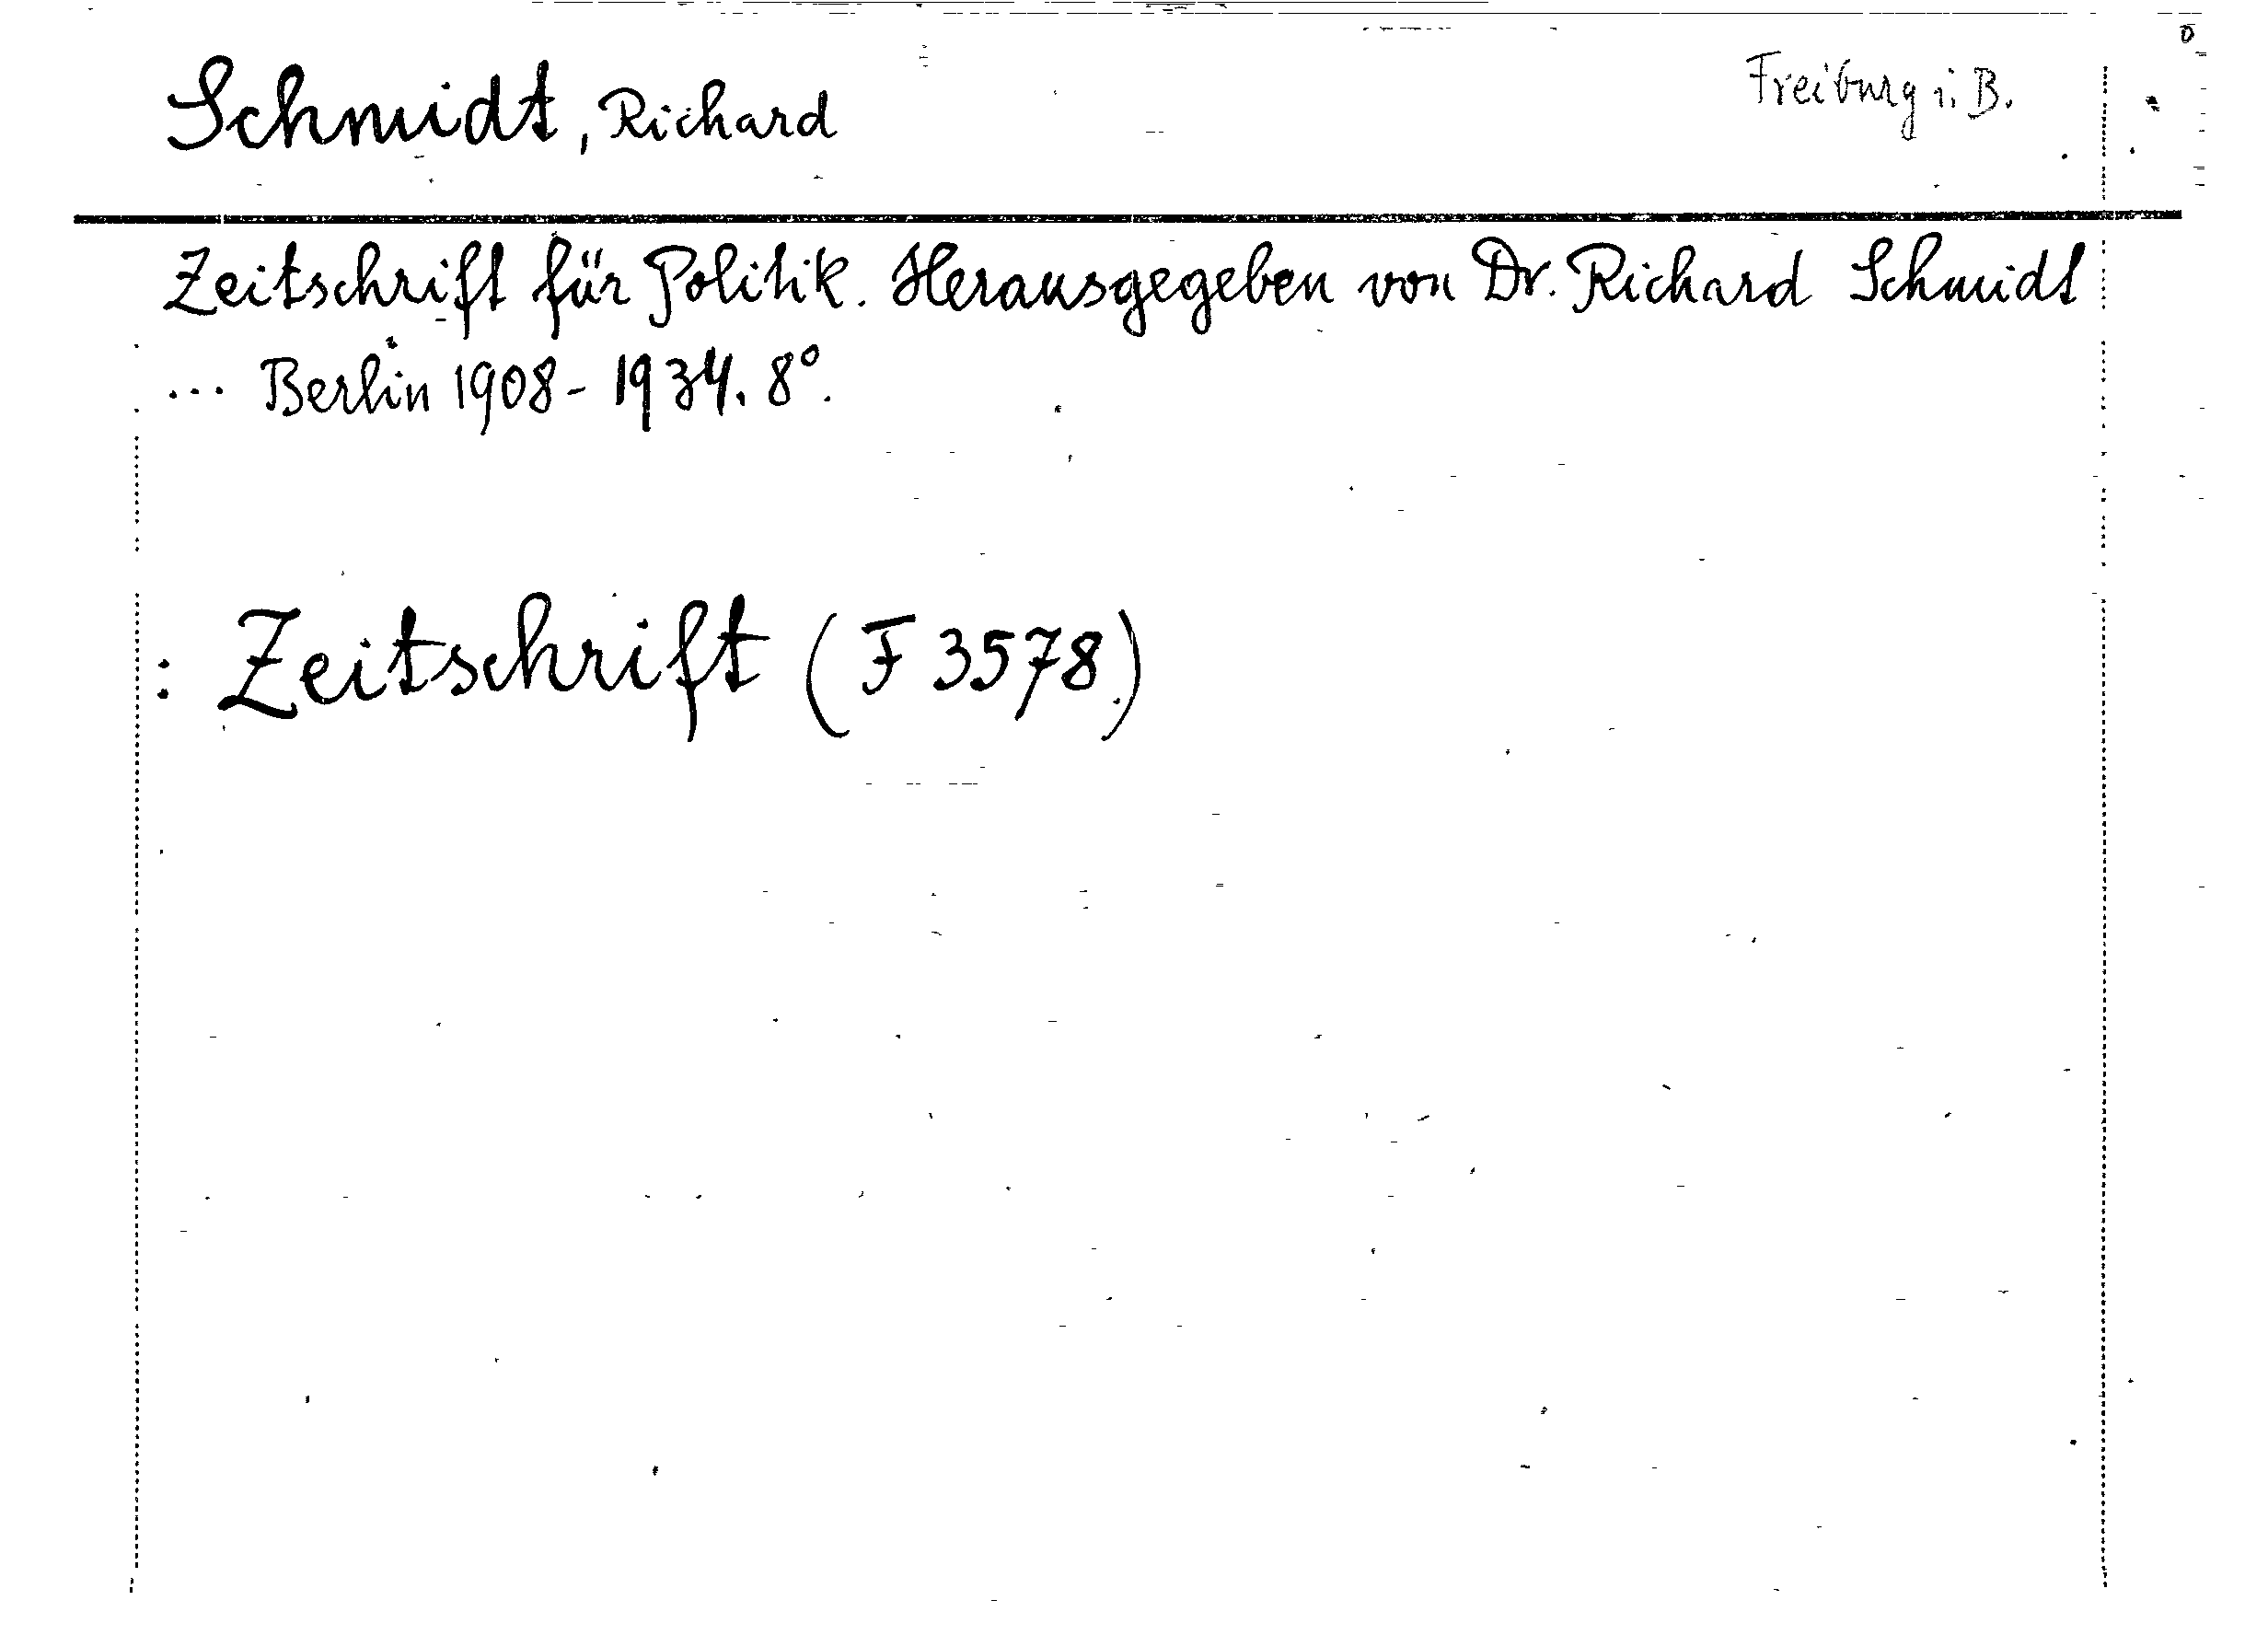 Schmidt, Richard
Freiburg i. B.
Zeitschrift für Politik. Herausgegeben von Dr. Richard Schmidt
... Berlin 1908-1934. 8°.
: Zeitschrift (F 3578)